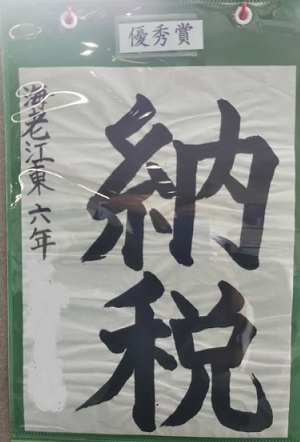 優秀賞
納税
海老江東 六年